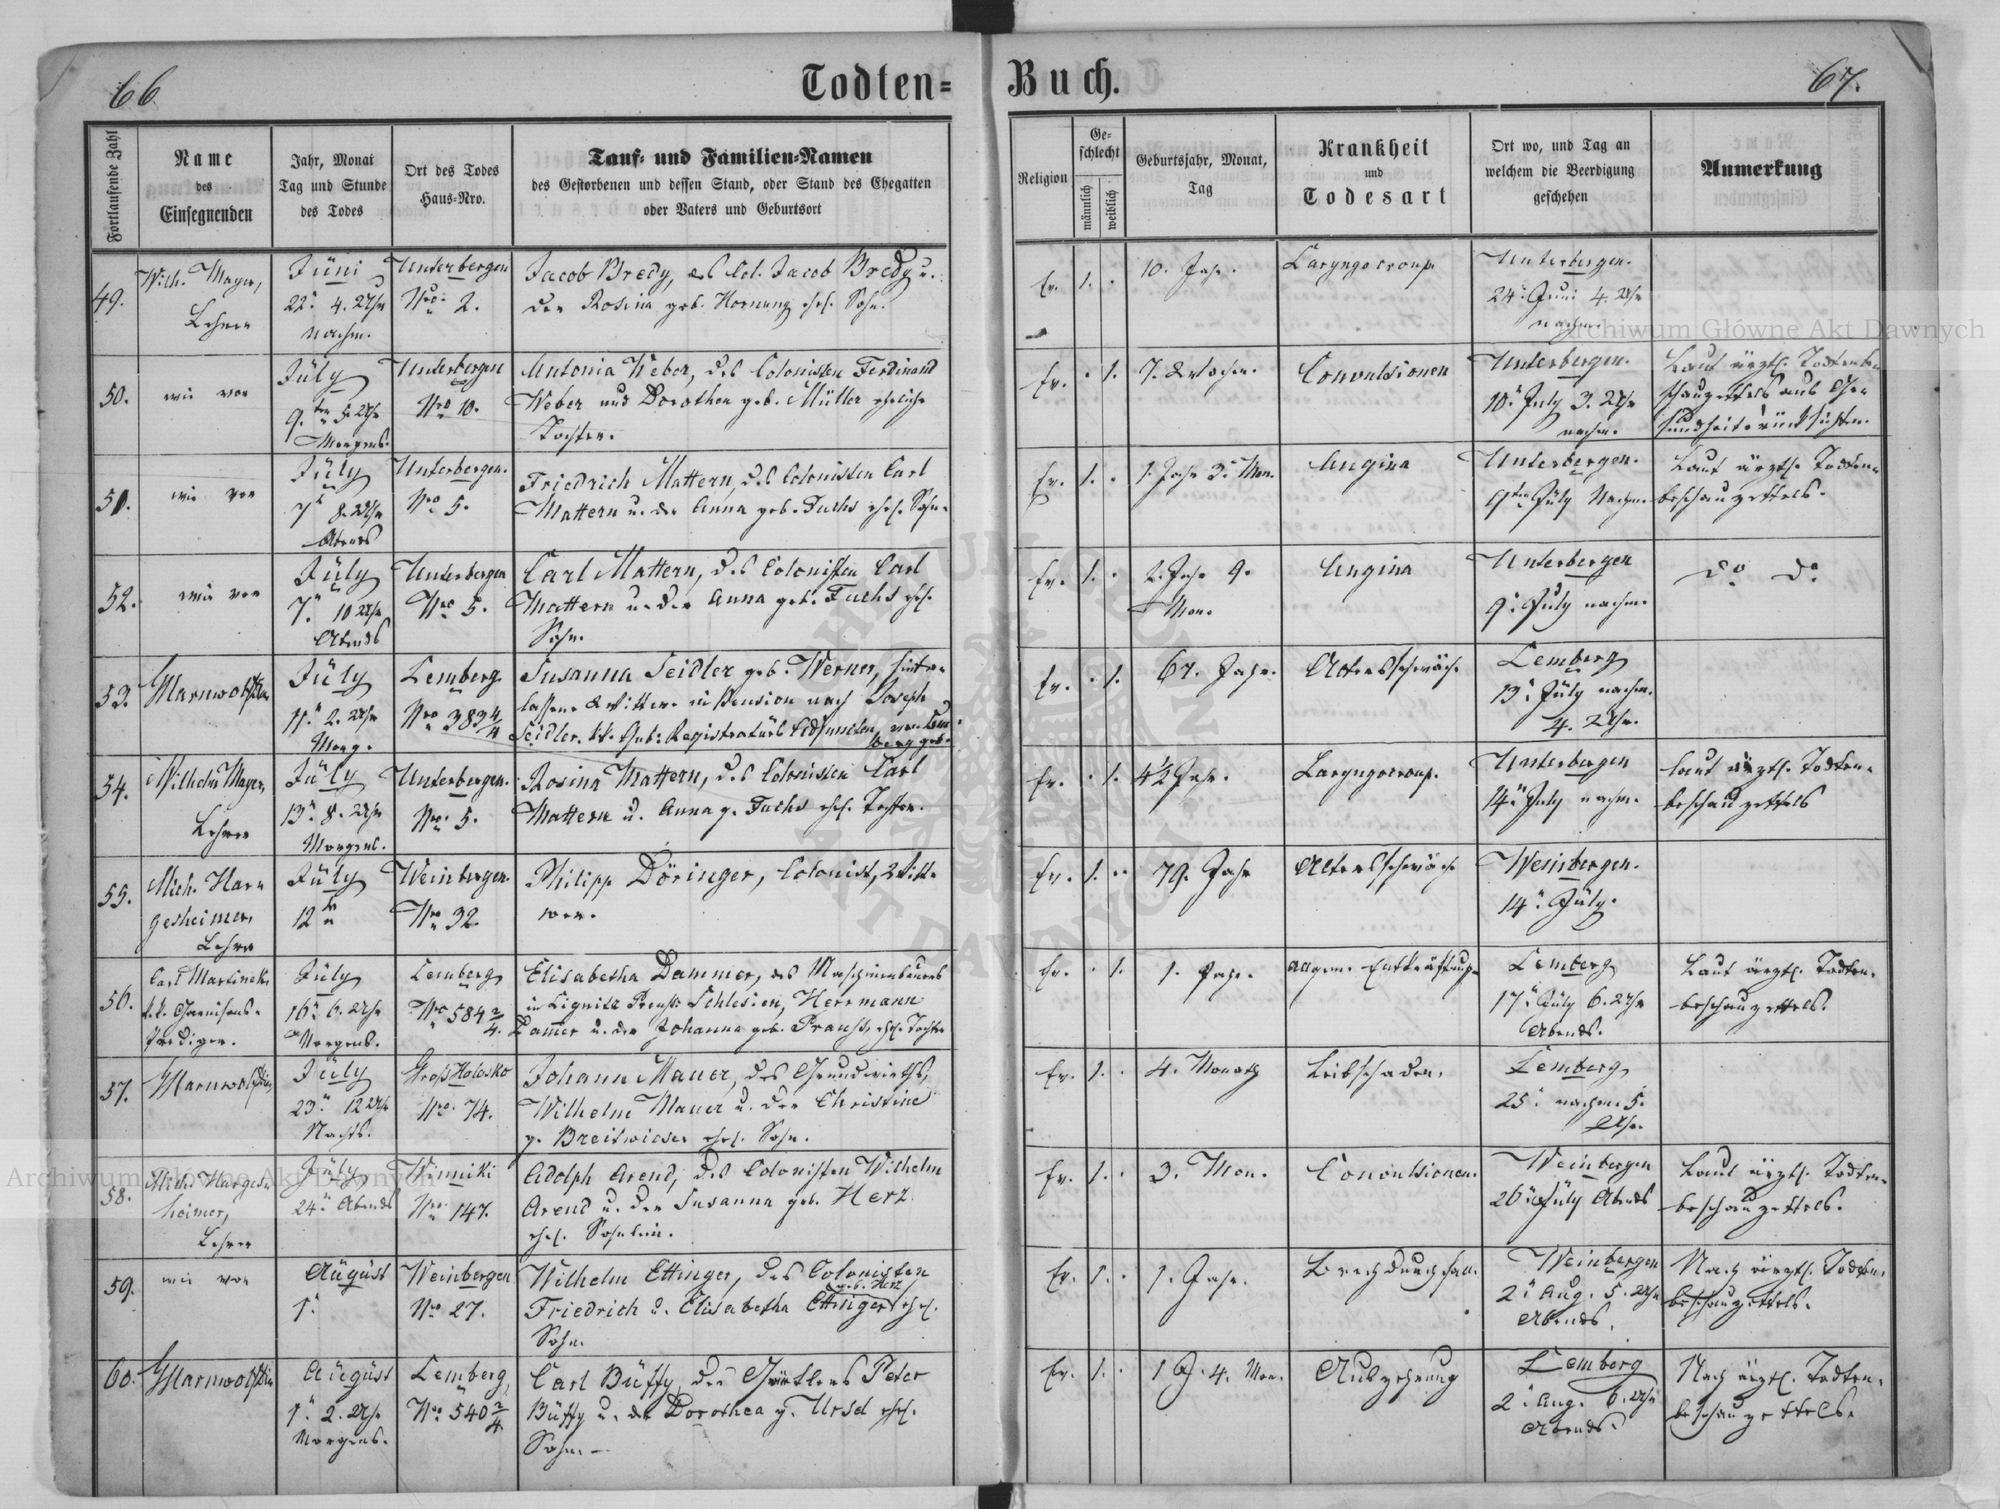 66
Todten=
Buch.
67.
Fortlaufende Zahl
Name
des
Einsegnenden
Jahr, Monat
Tag und Stunde
des Todes
Ort des Todes
Haus-Nro.
Tauf- und Familien-Namen
des Gestorbenen und dessen Stand, oder Stand des Ehegatten
oder Vaters und Geburtsort
Religion
Ge-
schlecht
männlich
weiblich
Geburtsjahr, Monat,
Tag
Krankheit
und
Todesart
Ort wo, und Tag an
welchem die Beerdigung
geschehen
Anmerkung
49.
Wilh. Mayer,
Lehrer
Juni
22. 4. Uhr
nachm.
Unterbergen
Nro 2.
Jacob Bredy, des Col. Jacob Bredy u.
der Rosina geb. Hornung ehel. Sohn.
Ev. 1. .
10. Jahr.
Laryngocroup.
Unterbergen.
24. Juni 4. Uhr
nachm.
50.
wie vor
July
9.ten 5. Uhr
Morgens.
Unterbergen
Nro 10.
Antonia Weber, des Colonisten Ferdinand
Weber und Dorothea geb. Müller eheliche
Tochter.
Ev. . 1.
7. Wochen.
Convulsionen
Unterbergen.
10. July 3. Uhr
nachm.
Laut ärztl. Todtenbe-
schauzettels aus Ge-
sundheitsrücksichten.
51.
wie vor
July
7. 8. Uhr
Abends
Unterbergen.
Nro 5.
Friedrich Mattern, des Colonisten Carl
Mattern u. der Anna geb. Fuchs ehel. Sohn.
Ev. 1. .
1. Jahr 3. Mon.
Angina
Unterbergen.
9ten July Nachm.
Laut ärztl. Todten-
beschauzettels.
52.
wie vor
July
7. 10 Uhr
Abends
Unterbergen
Nro 5.
Carl Mattern, des Colonisten Carl
Mattern u. der Anna geb. Fuchs ehel.
Sohn.
Ev. 1. .
2. Jahr 9.
Mon.
Angina
Unterbergen
9. July nachm.
do do
53.
July
11. 2. Uhr
Morg.
Lemberg
Nro 383 4/4
Susanna Seidler geb. Werner, hinter-
lassene Wittwe in Pension nach Joseph
Seidler, k.k. Gub. Registraturs Adjuncten, von Lem
berg geb.
Ev. . 1.
67. Jahr.
Altersschwäche
Lemberg
13. July nachm.
4. Uhr.
54.
Wilhelm Mayer,
Lehrer
July
13. 8. Uhr
Morgens.
Unterbergen.
Nro. 5.
Rosina Mattern, des Colonisten Carl
Mattern u. Anna g. Fuchs ehel. Tochter.
Ev. . 1.
4½ Jahr.
Laryngocroup.
Unterbergen
14. July nachm.
laut ärztl. Todten-
beschauzettels
55.
Mich. Har-
gesheimer,
Lehrer
July
12
Weinbergen.
Nro 32.
Philipp Döringer, Colonist, Witt-
wer.
Ev. 1. .
79. Jahr
Altersschwäche
Weinbergen.
14. July.
56.
Carl Martinek,
k.k. Garnisons-
Prediger.
July
16. 6. Uhr
Morgens.
Lemberg
Nro 584 2/4.
Elisabetha Dammer, des Maschinenbauers
in Lignitz Preuss. Schlesien, Herrmann
Dammer u. der Johanna geb. Prauss, ehel. Tochter
Ev. . 1.
1. Jahr.
Allgem. Entkräftung
Lemberg
17. July 6. Uhr
Abends.
Laut ärztl. Todten-
beschauzettels.
57.
July
23. 12 Uhr
Nachts.
Groß Holosko
Nro. 74.
Johann Mauer, des Grundwirths
Wilhelm Mauer u. der Christine
g. Breitwieser ehel. Sohn.
Ev. 1. .
4. Monath
Leibschaden.
Lemberg
25. nachm. 5.
Uhr.
58.
Mich. Harges-
heimer,
Lehrer
July
24. Abends
Winniki
Nro 147.
Adolph Arend, des Colonisten Wilhelm
Arend u. der Susanna geb. Herz
ehel. Söhnlein.
Ev. 1. .
3. Mon.
Convulsionen.
Weinbergen
26. July Abends
Laut ärztl. Todten-
beschauzettels.
59.
wie vor
August
1.
Weinbergen
Nro 27.
Wilhelm Ettinger, des Colonisten
geb. Herz
Friedrich u. Elisabetha Ettinger ehel.
Sohn.
Ev. 1. .
1. Jahr.
Brechdurchfall.
Weinbergen
2. Aug. 5. Uhr
Abends.
Nach ärztl. Todten-
beschauzettels.
60.
August
1. 2. Uhr
Morgens.
Lemberg,
Nro 540 2/4
Carl Büffy, des Gärtlers Peter
Büffy u. der Dorothea g. Ursel ehel.
Sohn.
Ev. 1. .
1 J. 4. Mon.
Auszehrung
Lemberg
2. Aug. 6. Uhr
Abends.
Nach ärztl. Todten-
beschauzettels.
Archiwum Główne Akt Dawnych
Archiwum Główne Akt Dawnych